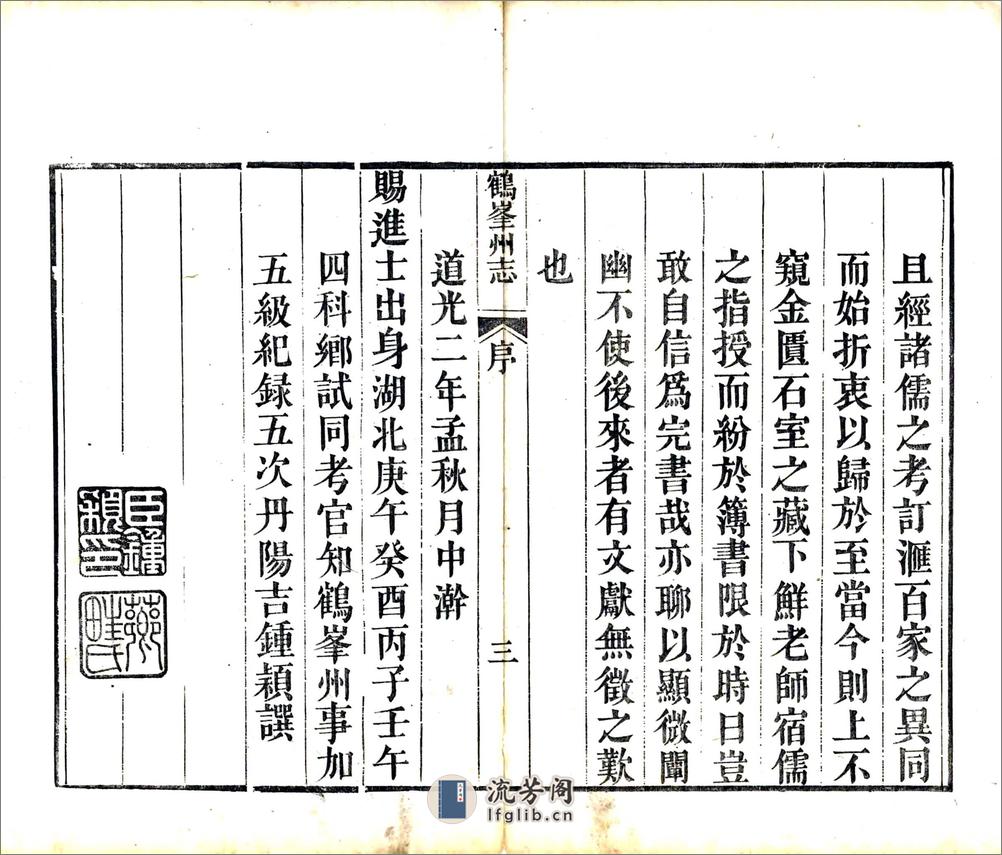 且經諸儒之考訂滙百家之異同
而始折衷以歸於至當今則上不
窺金匱石室之藏下鮮老師宿儒
之指授而紛於簿書限於時日豈
敢自信爲完書哉亦聊以顯微闡
幽不使後來者有文獻無徵之歎
也
鶴峯州志
序
三
道光二年孟秋月中澣
賜進士出身湖北庚午癸酉丙子壬午
四科鄉試同考官知鶴峯州事加
五級紀録五次丹陽吉鍾穎譔
臣鍾
穎印
流芳阁
lfglib.cn